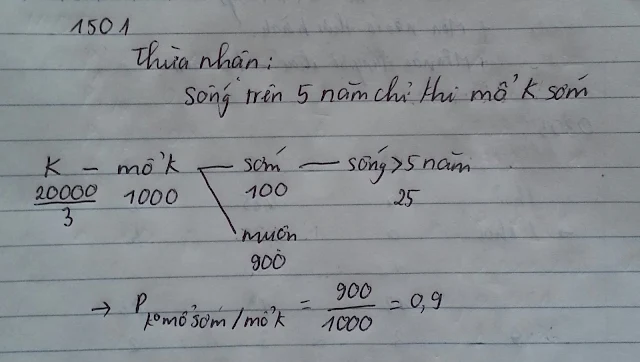 1501
Thừa nhận:
sống trên 5 năm chỉ khi mổ K sớm
K – mổ K — sớm — sống > 5 năm
20000/3 1000 100 25
muộn
900
→ P kº mổ sớm / mổ K = 900/1000 = 0,9